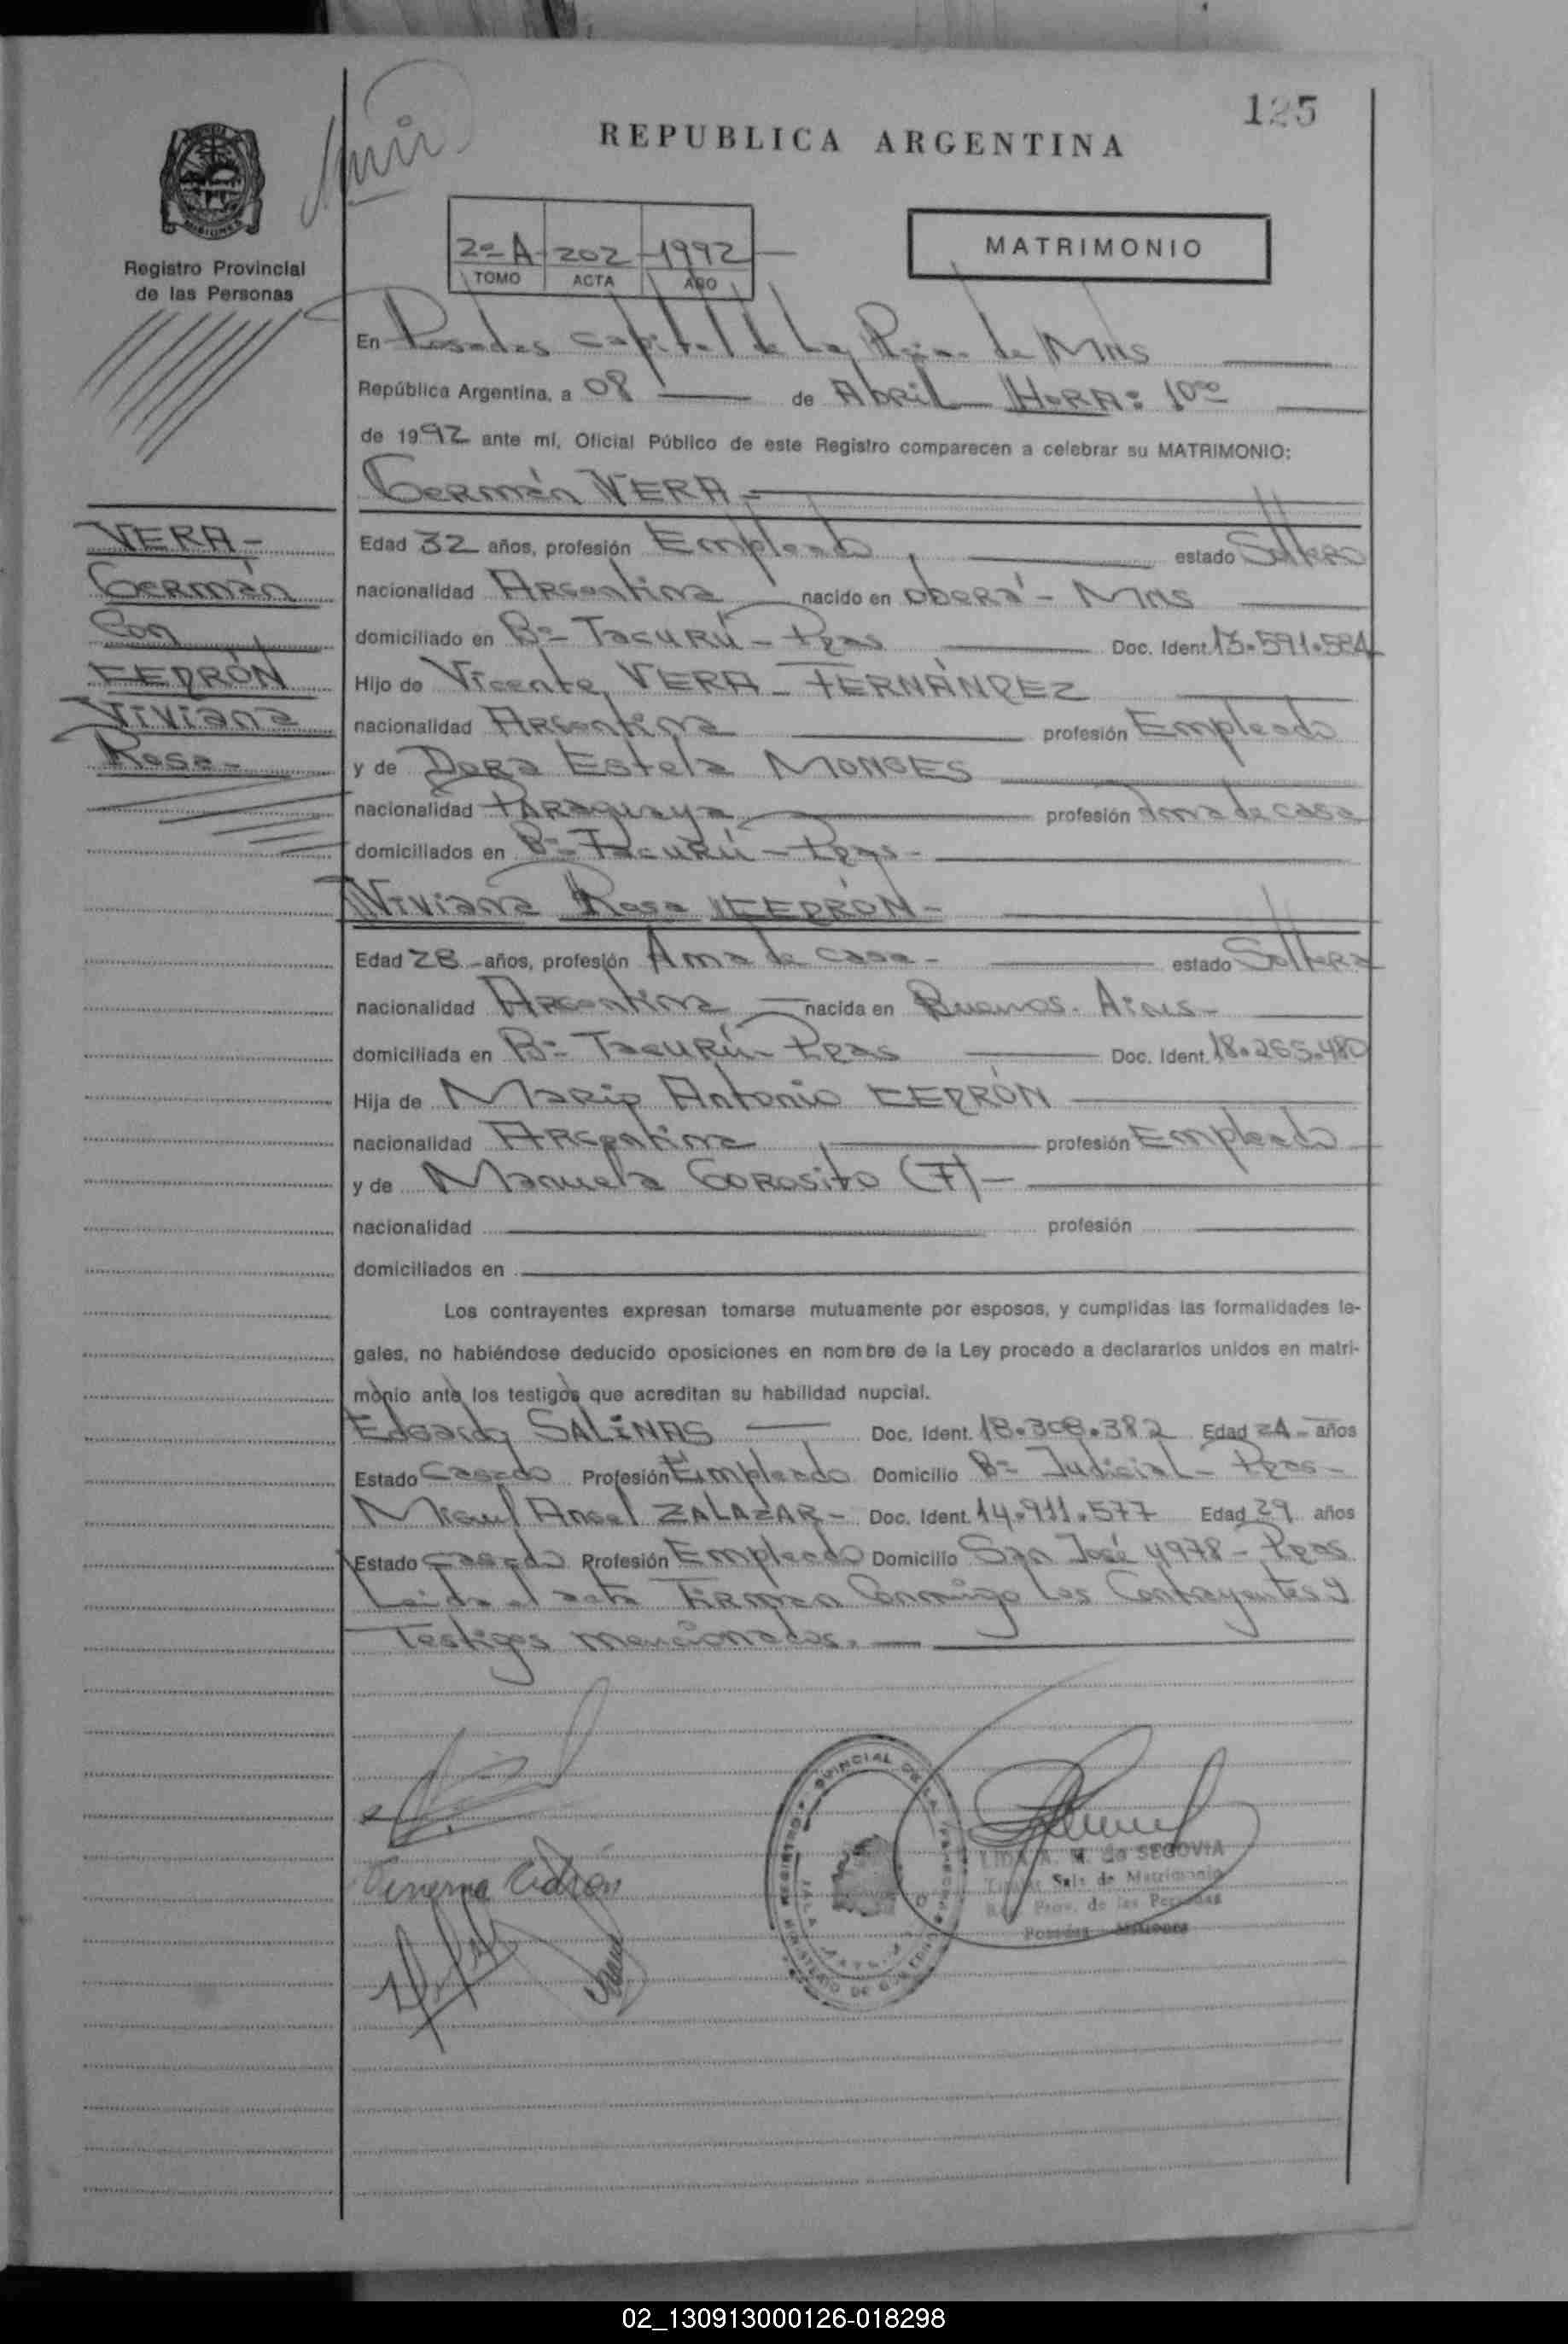 125
REPUBLICA ARGENTINA
2º A 202 1992
TOMO ACTA AÑO
MATRIMONIO
Registro Provincial
de las Personas
En Posadas Capital de la Pcia. de Mns
República Argentina, a 08 de Abril HORA: 10ºº
de 1992 ante mí, Oficial Público de este Registro comparecen a celebrar su MATRIMONIO:
Germán VERA
VERA -
Germán
Con
CEDRÓN
Viviana
Rosa -
Edad 32 años, profesión Empleado estado Soltero
nacionalidad Argentina nacido en Oberá - Mns
domiciliado en Bº Tacurú - Pdas Doc. Ident. 13.591.584
Hijo de Vicente VERA - FERNÁNDEZ
nacionalidad Argentina profesión Empleado
y de Dora Estela MONGES
nacionalidad Paraguaya profesión Ama de casa
domiciliados en Bº Tacurú - Pdas -
Viviana Rosa CEDRÓN -
Edad 28 años, profesión Ama de casa - estado Soltera
nacionalidad Argentina nacida en Buenos Aires -
domiciliada en Bº Tacurú - Pdas Doc. Ident. 18.265.480
Hija de Mario Antonio CEDRÓN
nacionalidad Argentina profesión Empleado
y de Manuela GOROSITO (F) -
nacionalidad profesión
domiciliados en
Los contrayentes expresan tomarse mutuamente por esposos, y cumplidas las formalidades le-
gales, no habiéndose deducido oposiciones en nombre de la Ley procedo a declararlos unidos en matri-
monio ante los testigos que acreditan su habilidad nupcial.
Edgardo SALINAS Doc. Ident. 18.308.382 Edad 24 años
Estado Casado Profesión Empleado Domicilio Bº Judicial - Pdas -
Miguel Angel ZALAZAR - Doc. Ident. 14.911.577 Edad 29 años
Estado Casado Profesión Empleado Domicilio San José 4978 - Pdas
Leída el acta Firman Conmigo los Contrayentes y
Testigos mencionados.
Cedrón
LIDA A. M. de SEGOVIA
Titular Sala de Matrimonio
Reg. Prov. de las Personas
Posadas Misiones
02_130913000126-018298